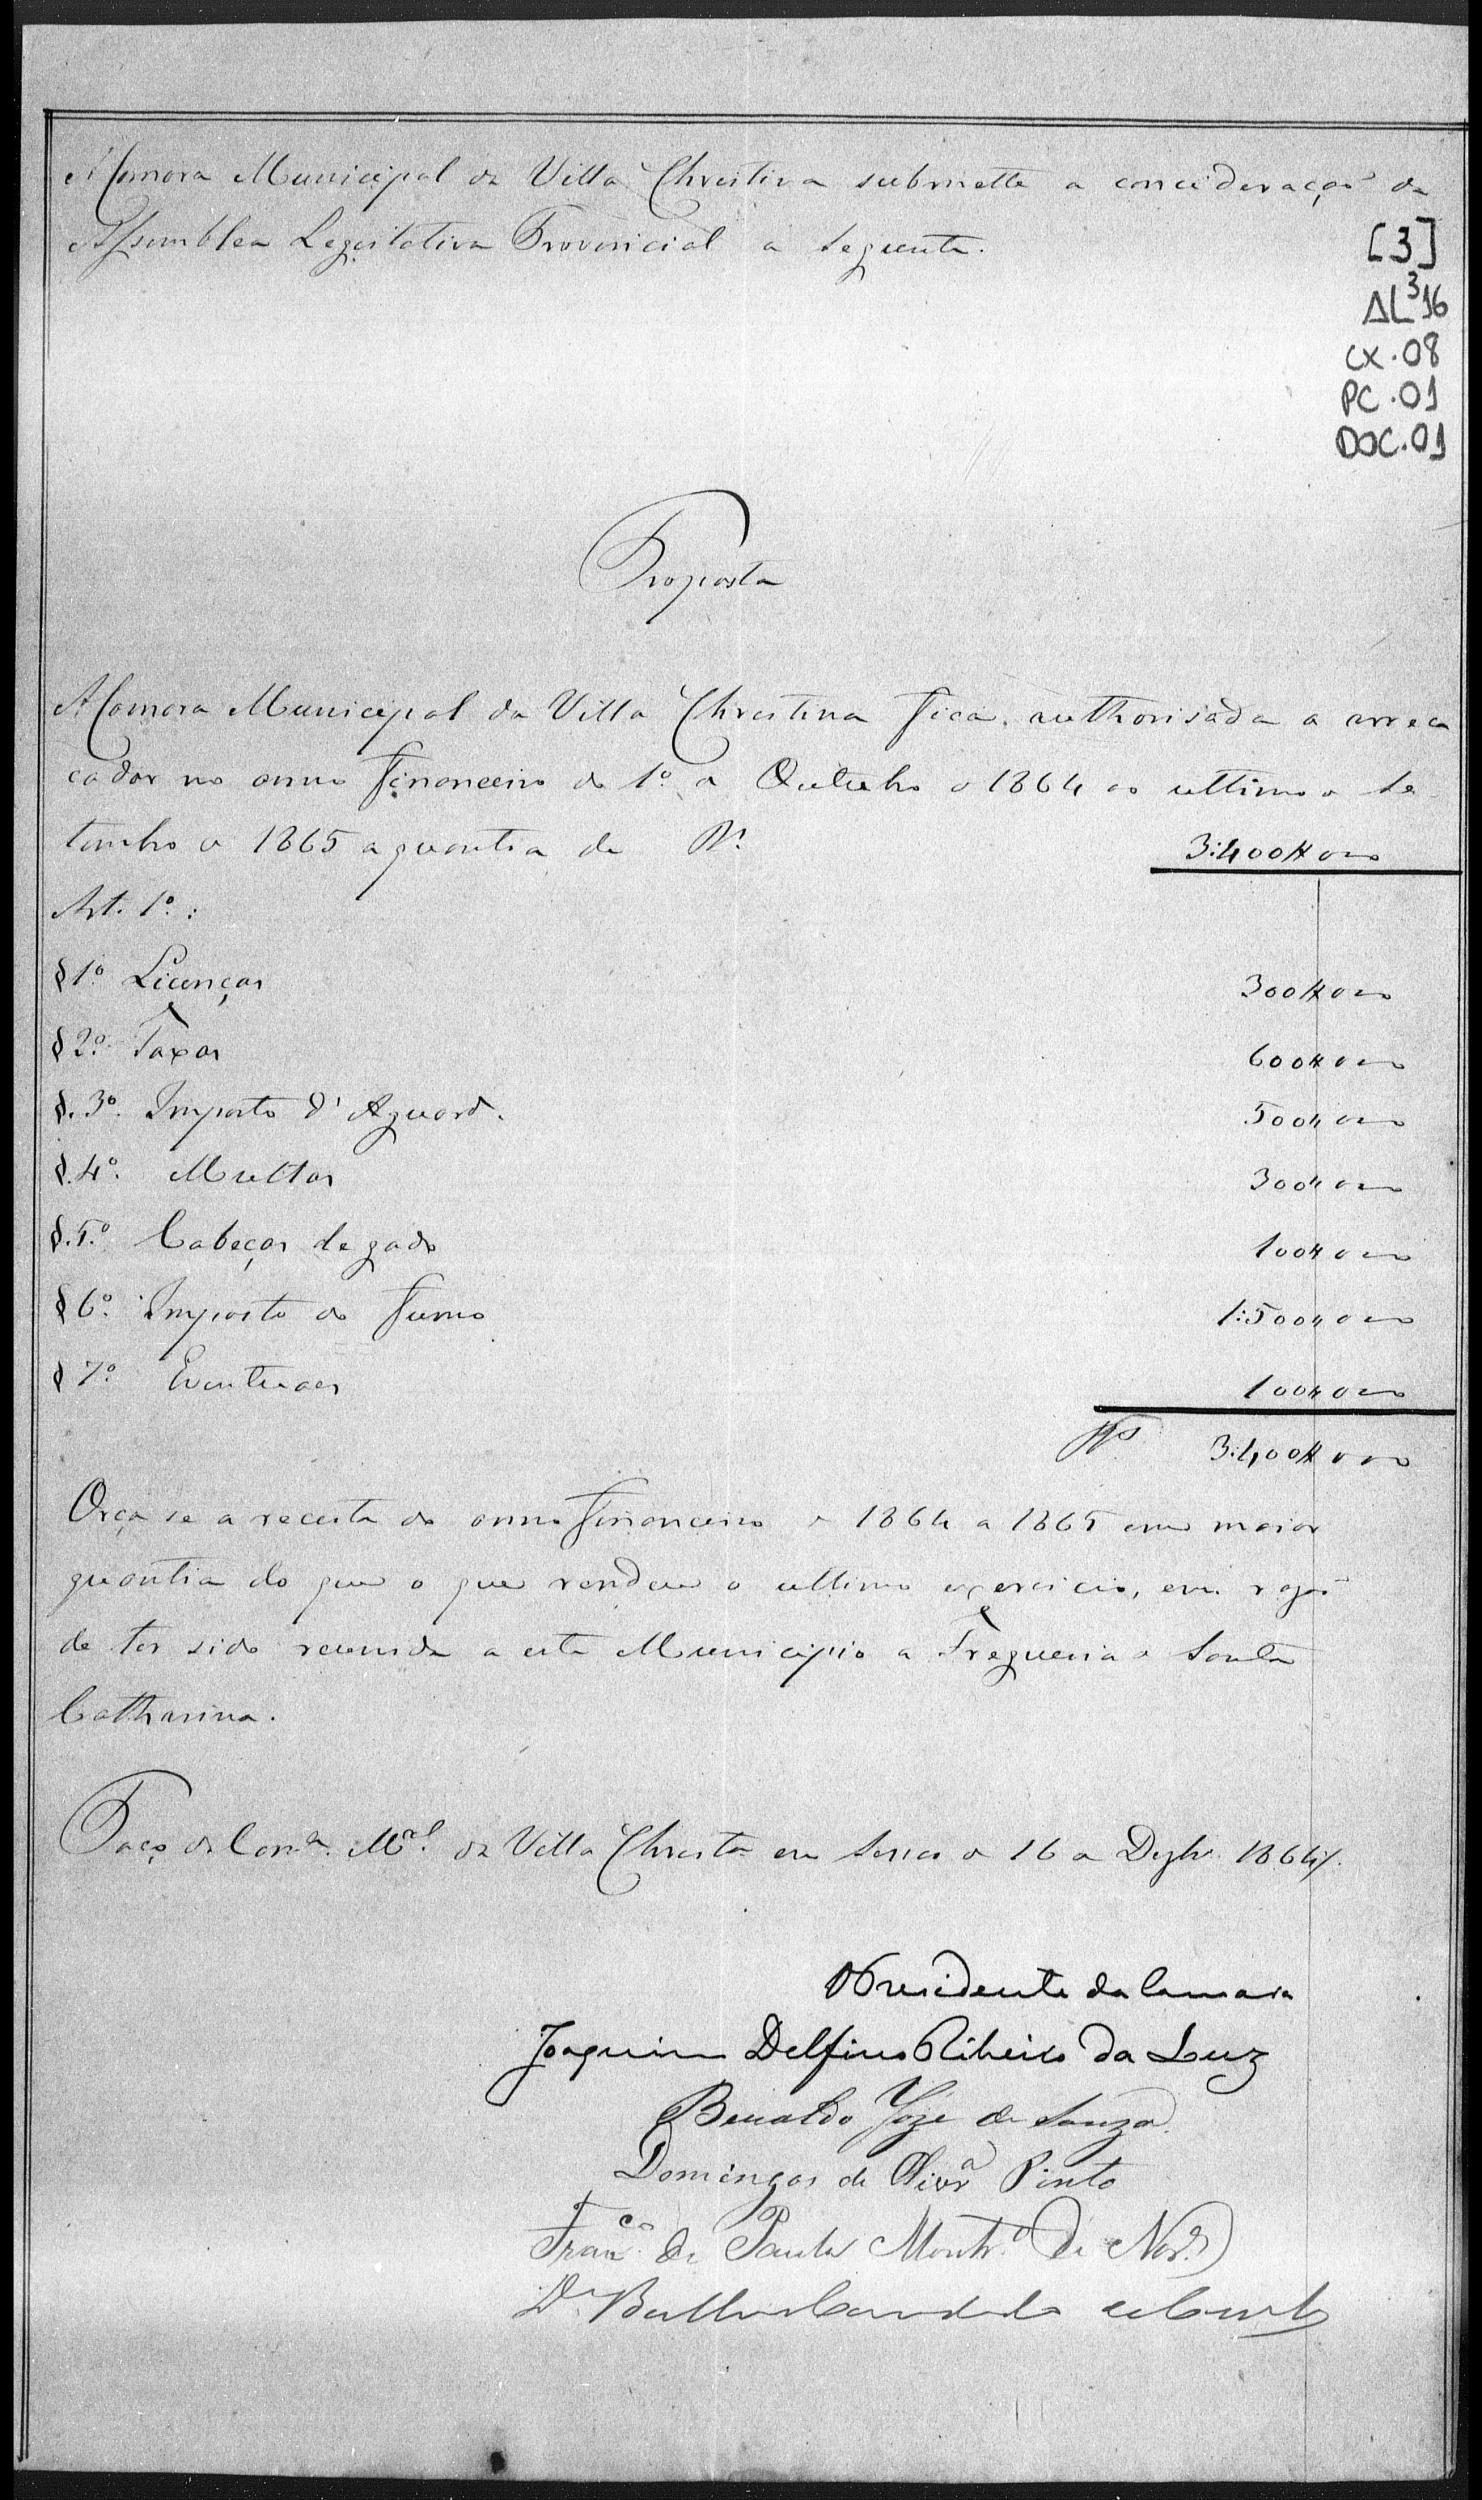 A Camara Municipal da Villa Christina submette a concideração da
Assemblea Legislativa Provincial a seguente.
[3]
AL³16
CX.08
PC.01
DOC.01
Proposta
A Camara Municipal da Villa Christina fica authorisada a arreca
cadar no anno financeiro do 1º de Outubro de 1864 ao ultimo de Se
tembro de 1865 a quantia de Rs
3:400#000
Art. 1º:
§1º Licenças 300#000
§2º Taxas 600#000
§.3º Imposto d'Aguard. 500#000
§.4º Multas 300#000
§.5º Cabeças de gado 100#000
§6º Imposto do fumo 1:500#000
§7º Eventuaes 100#000
Rs 3:400#000
Orça se a receita do anno financeiro de 1864 a 1865 em maior
quantia do que o que rendeu o ultimo exercicio, em razão
de ter sido reunida a este Municipio a Freguesia de Santa
Catharina.
Paço da Camª. Mal. da Villa Christa em Sessão de 16 de Dezbr. 1864
O Presidente da Camara
Joaquim Delfino Ribeiro da Luz
Bernardo Joze de Souza
Domingos de Olivrª Pinto
Francº de Paula Montrº de Norª
Dr